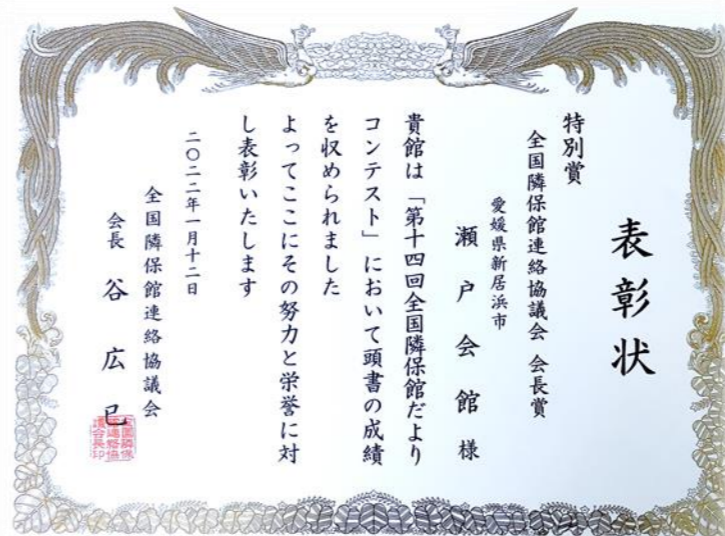 表彰状
特別賞
全国隣保館連絡協議会 会長賞
愛媛県新居浜市
瀬戸会館 様
貴館は「第十四回全国隣保館だより
コンテスト」において頭書の成績
を収められました
よってここにその努力と栄誉に対
し表彰いたします
二〇二二年一月十二日
全国隣保館連絡協議会
会長 谷広巳